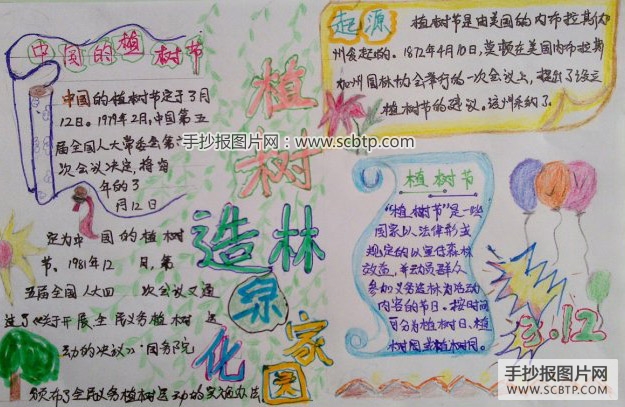 中国的植树节
中国的植树节定于3月
12日。1979年2月,中国第五
届全国人大常委会第六
次会议决定,将每
年的3
月12日
定为中国的植树
节。1981年12月,第
五届全国人大四次会议又通
过了《关于开展全民义务植树运
动的决议》。国务院
颁布了全民义务植树运动的实施办法
植
树
造林
绿
化
家
园
起源
植树节是由美国的内布拉斯加
州发起的。1872年4月10日,莫顿在美国内布拉斯
加州园林协会举行的一次会议上,提出了设立
植树节的建议。该州采纳了
手抄报图片网:www.scbtp.com
植树节
“植树节”是一些
国家以法律形式
规定的以宣传森林
效益,并动员群众
参加义务造林为活动
内容的节日。按时间
可分为植树日、植
树周或植树月。
3.12
手抄报图片网
WWW.SCBTP.COM